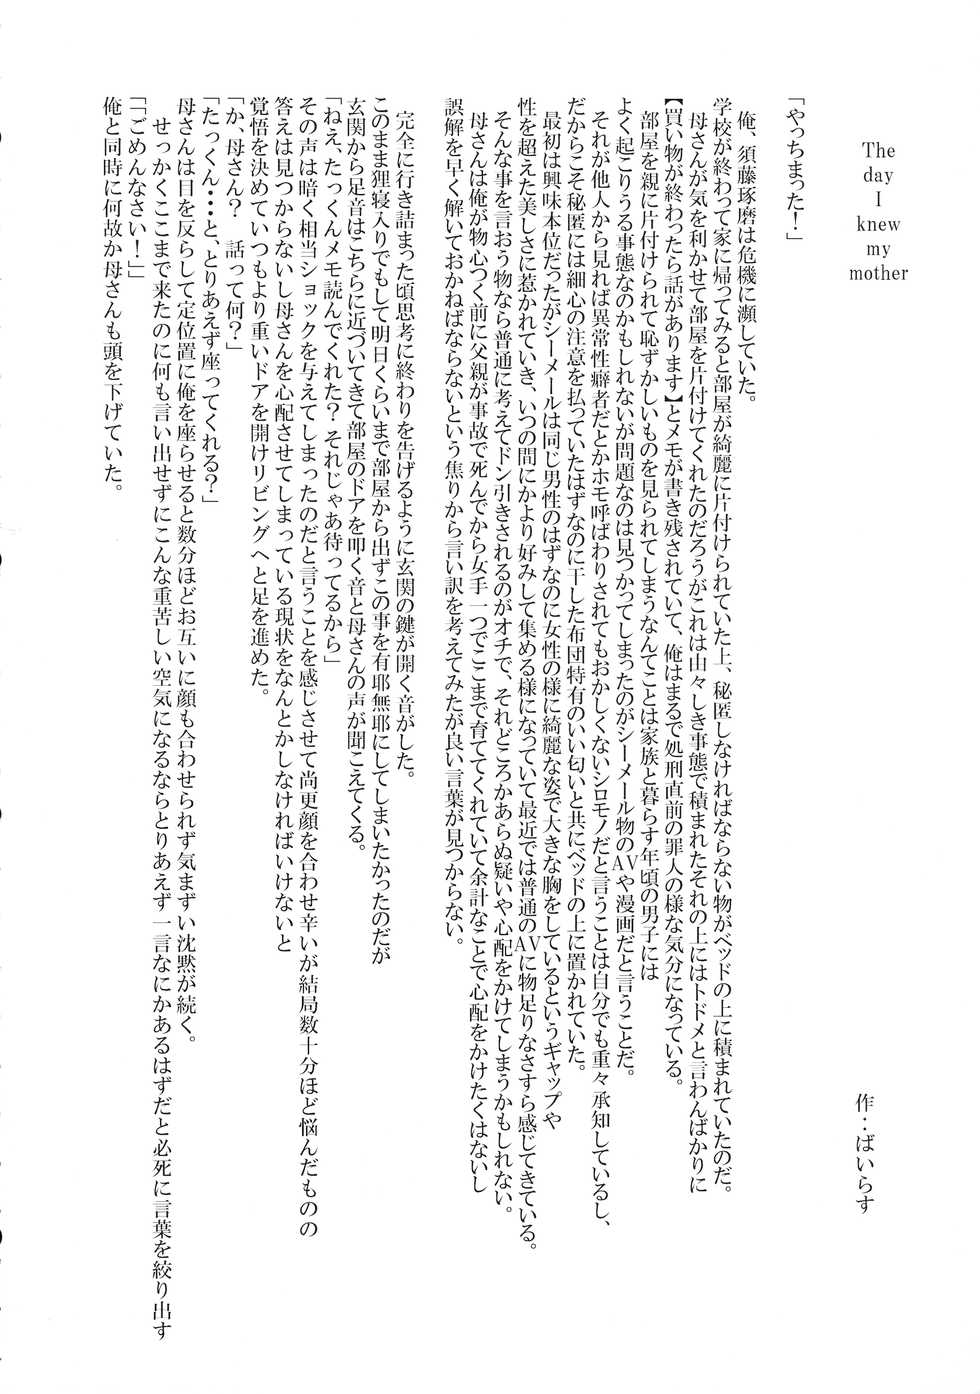 The day I knew my mother
作：ばいらす
「やっちまった！」
俺、須藤琢磨は危機に瀕していた。
学校が終わって家に帰ってみると部屋が綺麗に片付けられていた上、秘匿しなければならない物がベッドの上に積まれていたのだ。
母さんが気を利かせて部屋を片付けてくれたのだろうがこれは由々しき事態で積まれたそれの上にはトドメと言わんばかりに
【買い物が終わったら話があります】とメモが書き残されていて、俺はまるで処刑直前の罪人の様な気分になっている。
部屋を親に片付けられて恥ずかしいものを見られてしまうなんてことは家族と暮らす年頃の男子には
よく起こりうる事態なのかもしれないが問題なのは見つかってしまったのがシーメール物のAVや漫画だと言うことだ。
それが他人から見れば異常性癖者だとかホモ呼ばわりされてもおかしくないシロモノだと言うことは自分でも重々承知しているし、
だからこそ秘匿には細心の注意を払っていたはずなのに干した布団特有のいい匂いと共にベッドの上に置かれていた。
最初は興味本位だったがシーメールは同じ男性のはずなのに女性の様に綺麗な姿で大きな胸をしているというギャップや
性を超えた美しさに惹かれていき、いつの間にかより好みして集める様になっていて最近では普通のAVに物足りなさすら感じてきている。
そんな事を言おう物なら普通に考えてドン引きされるのがオチで、それどころかあらぬ疑いや心配をかけてしまうかもしれない。
母さんは俺が物心つく前に父親が事故で死んでから女手一つでここまで育ててくれていて余計なことで心配をかけたくはないし
誤解を早く解いておかねばならないという焦りから言い訳を考えてみたが良い言葉が見つからない。
完全に行き詰まった頃思考に終わりを告げるように玄関の鍵が開く音がした。
このまま狸寝入りでもして明日くらいまで部屋から出ずこの事を有耶無耶にしてしまいたかったのだが
玄関から足音はこちらに近づいてきて部屋のドアを叩く音と母さんの声が聞こえてくる。
「ねえ、たっくんメモ読んでくれた？それじゃあ待ってるから」
その声は暗く相当ショックを与えてしまったのだと言うことを感じさせて尚更顔を合わせ辛いが結局数十分ほど悩んだものの
答えは見つからないし母さんを心配させてしまっている現状をなんとかしなければいけないと
覚悟を決めていつもより重いドアを開けリビングへと足を進めた。
「か、母さん？　話って何？」
「たっくん・・・と、とりあえず座ってくれる？」
母さんは目を反らして定位置に俺を座らせると数分ほどお互いに顔も合わせられず気まずい沈黙が続く。
せっかくここまで来たのに何も言い出せずにこんな重苦しい空気になるならとりあえず一言なにかあるはずだと必死に言葉を絞り出す
「「ごめんなさい！」」
俺と同時に何故か母さんも頭を下げていた。